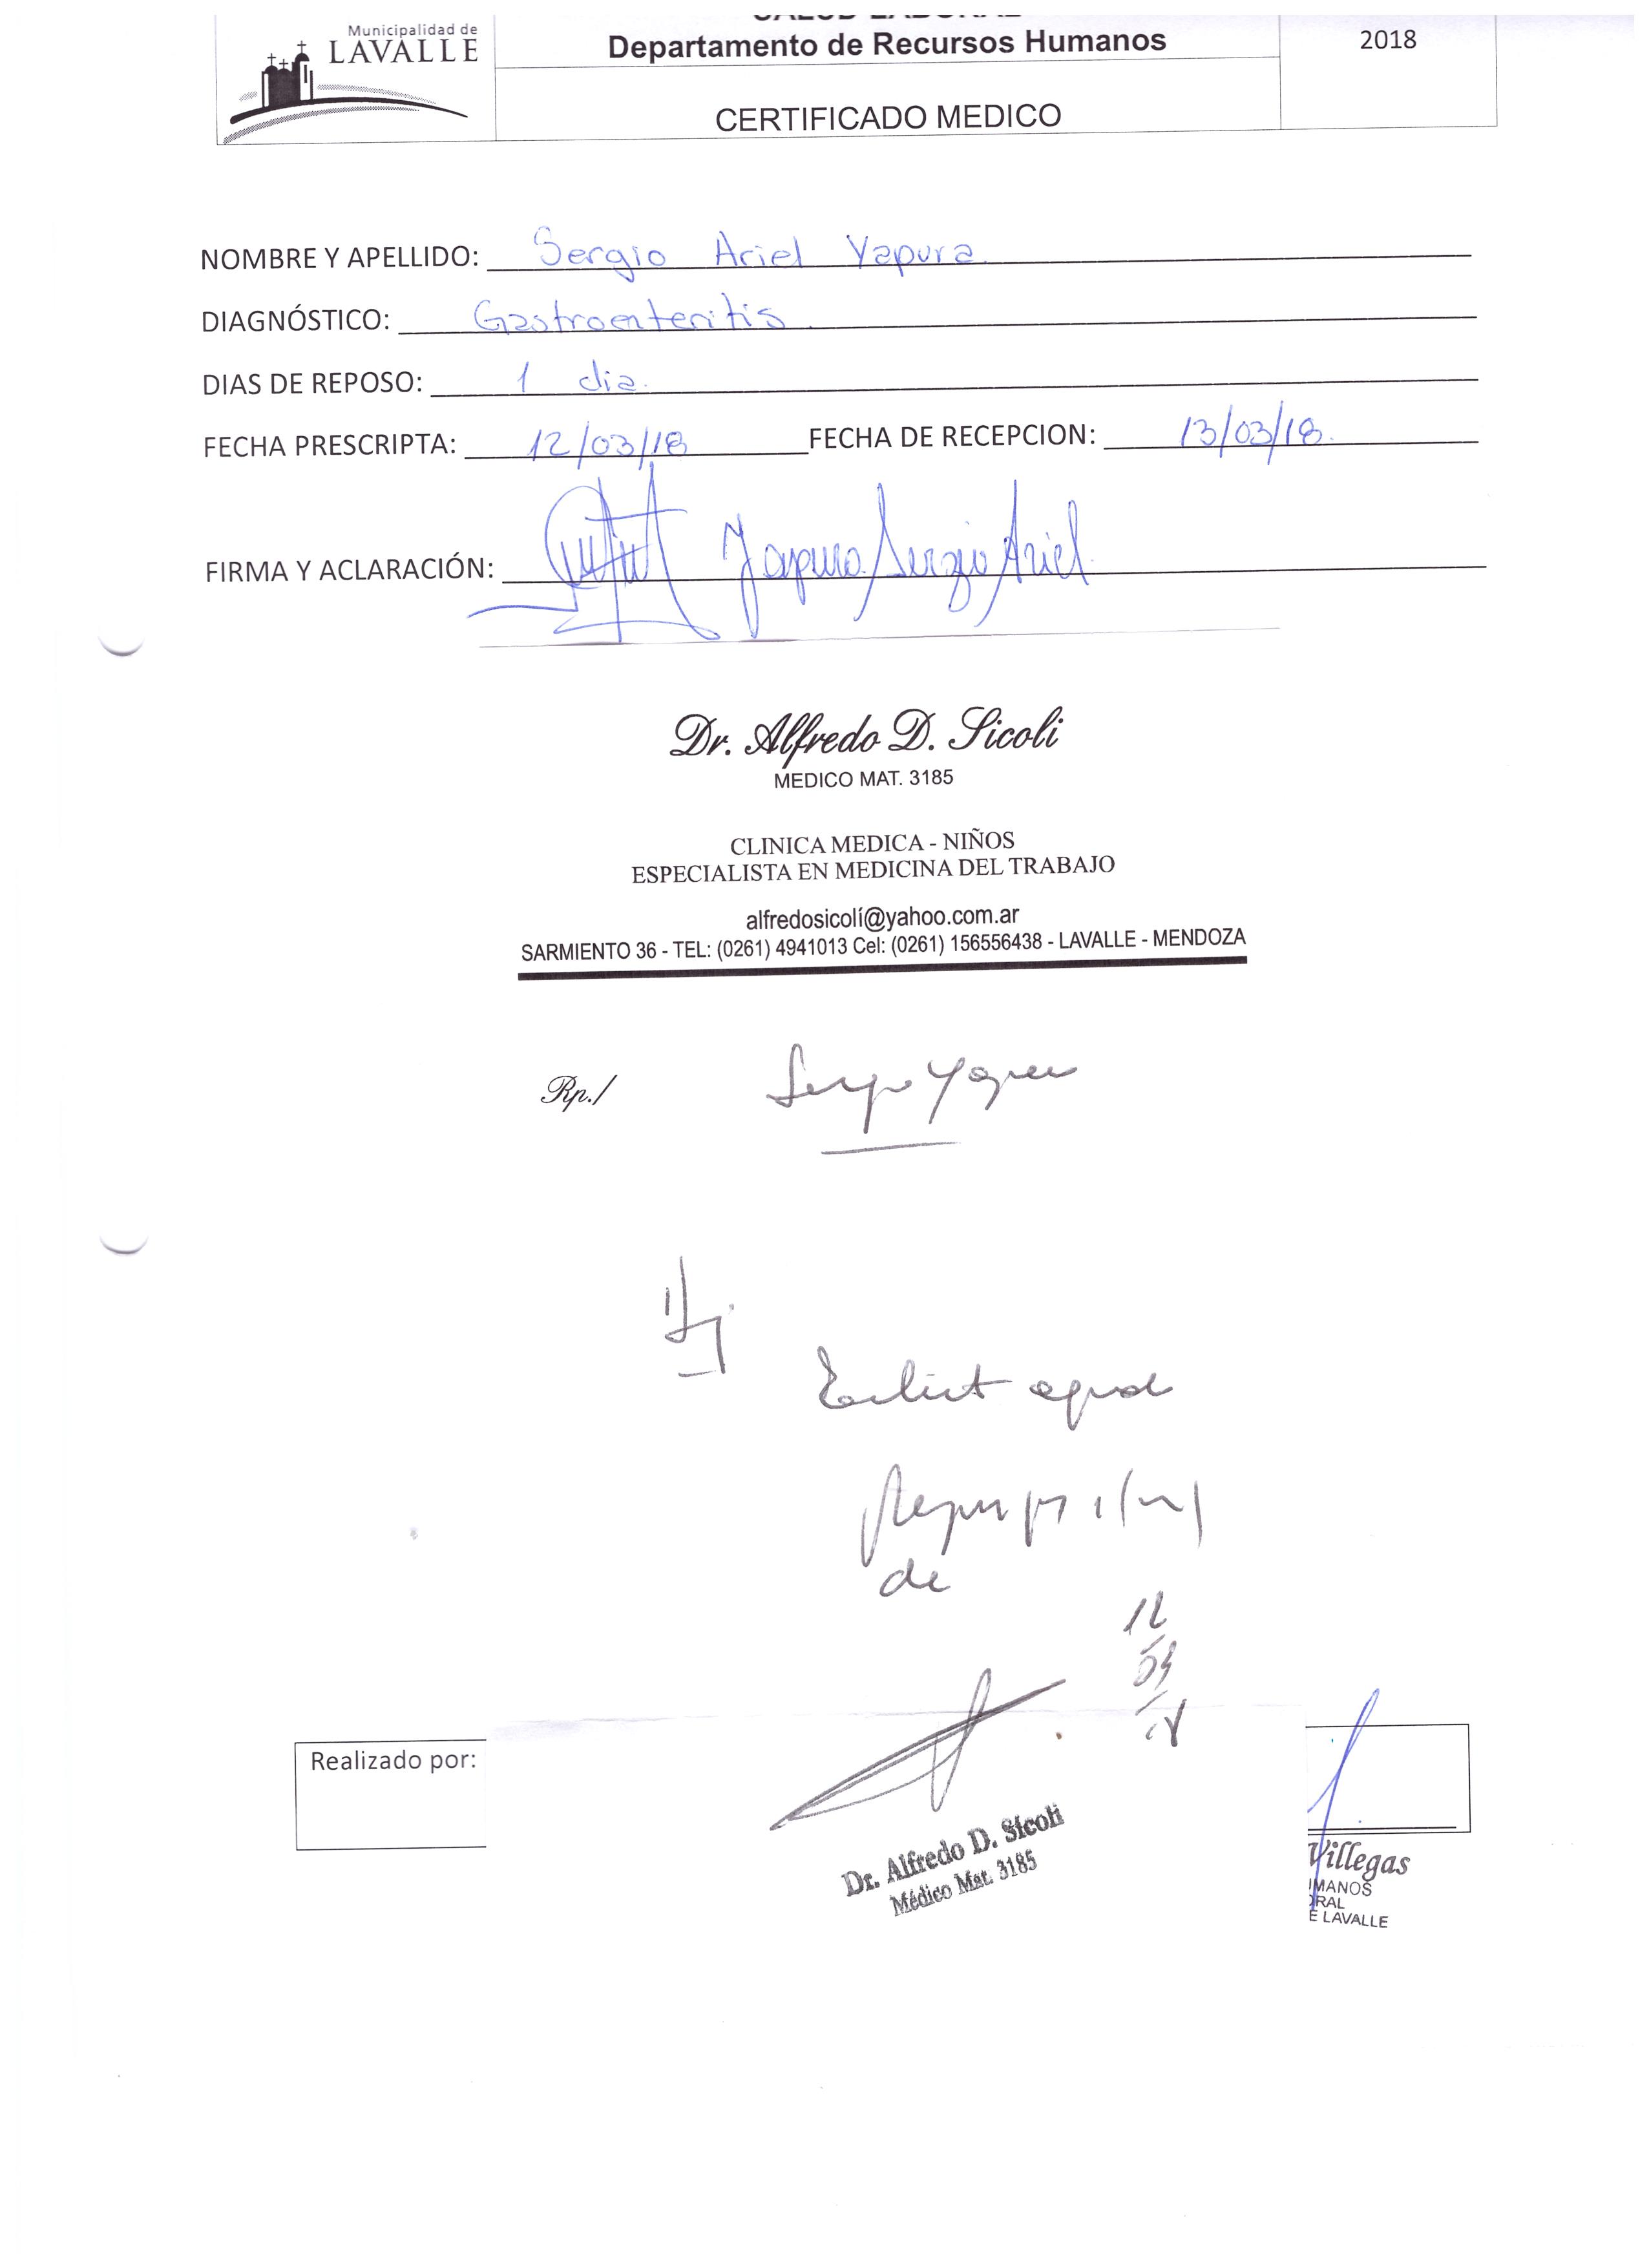 Municipalidad de
LAVALLE
SALUD LABORAL
Departamento de Recursos Humanos
2018
CERTIFICADO MEDICO
NOMBRE Y APELLIDO: Sergio Ariel Yapura
DIAGNÓSTICO: Gastroenteritis
DIAS DE REPOSO: 1 dia.
FECHA PRESCRIPTA: 12/03/18 FECHA DE RECEPCION: 13/03/18.
FIRMA Y ACLARACIÓN: Yapura Sergio Ariel
Dr. Alfredo D. Sicoli
MEDICO MAT. 3185
CLINICA MEDICA - NIÑOS
ESPECIALISTA EN MEDICINA DEL TRABAJO
alfredosicolí@yahoo.com.ar
SARMIENTO 36 - TEL: (0261) 4941013 Cel: (0261) 156556438 - LAVALLE - MENDOZA
Rp./ Sergio Yapura
de
12
Realizado por:
Dr. Alfredo D. Sicoli
Médico Mat. 3185
Villegas
MANOS
RAL
E LAVALLE